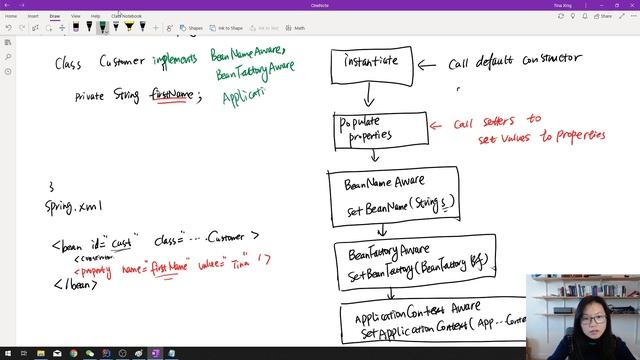 OneNote
Tina Xing
File Home Insert Draw View Help Class Notebook
Shapes Ink to Shape Ink to Text
Class Customer implements BeanNameAware,
BeanFactoryAware
private String firstName;
Applicati
}
Spring.xml
<bean id="cust" class="... .Customer >
<property name="firstName" value="Tina" />
</bean>
instantiate
call default constructor
populate
properties
call setters to
set values to properties
BeanNameAware
setBeanName(String s)
BeanFactoryAware
setBeanFactory(BeanFactory bf)
ApplicationContext Aware
setApplicationContext(App...Conte